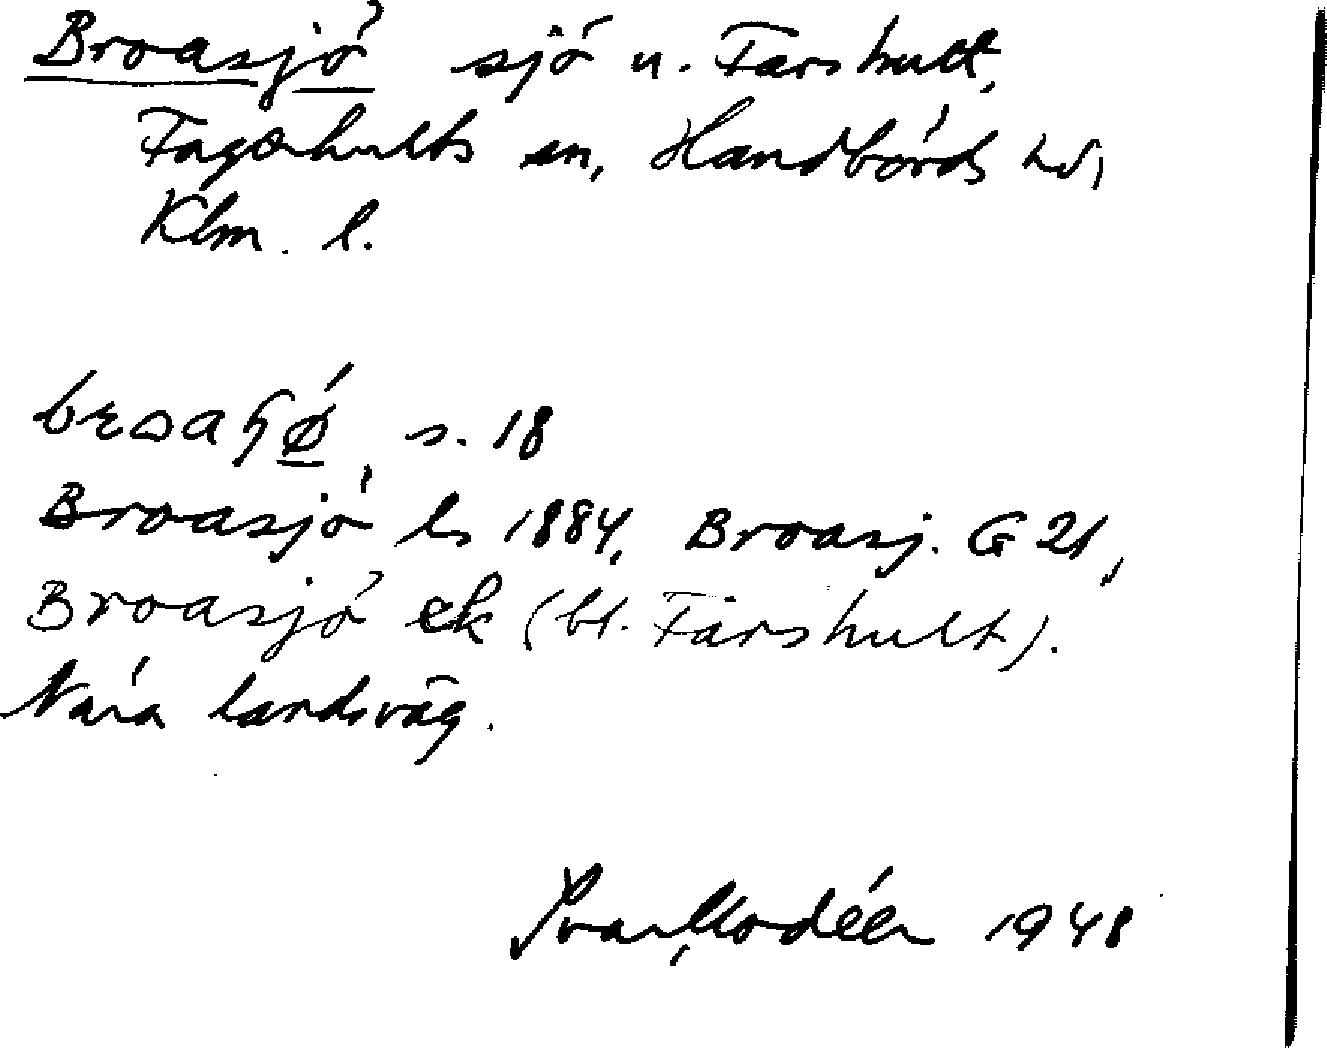 Broasjö sjö u. Färshult,
Fagerhults sn, Handbörds hd,
Klm. l.
s. 18
Broasjö ls 1884, Broasj. G 21,
Broasjö ek (bl. Färshult).
Nära landsväg.
Ivar Modéer 1948